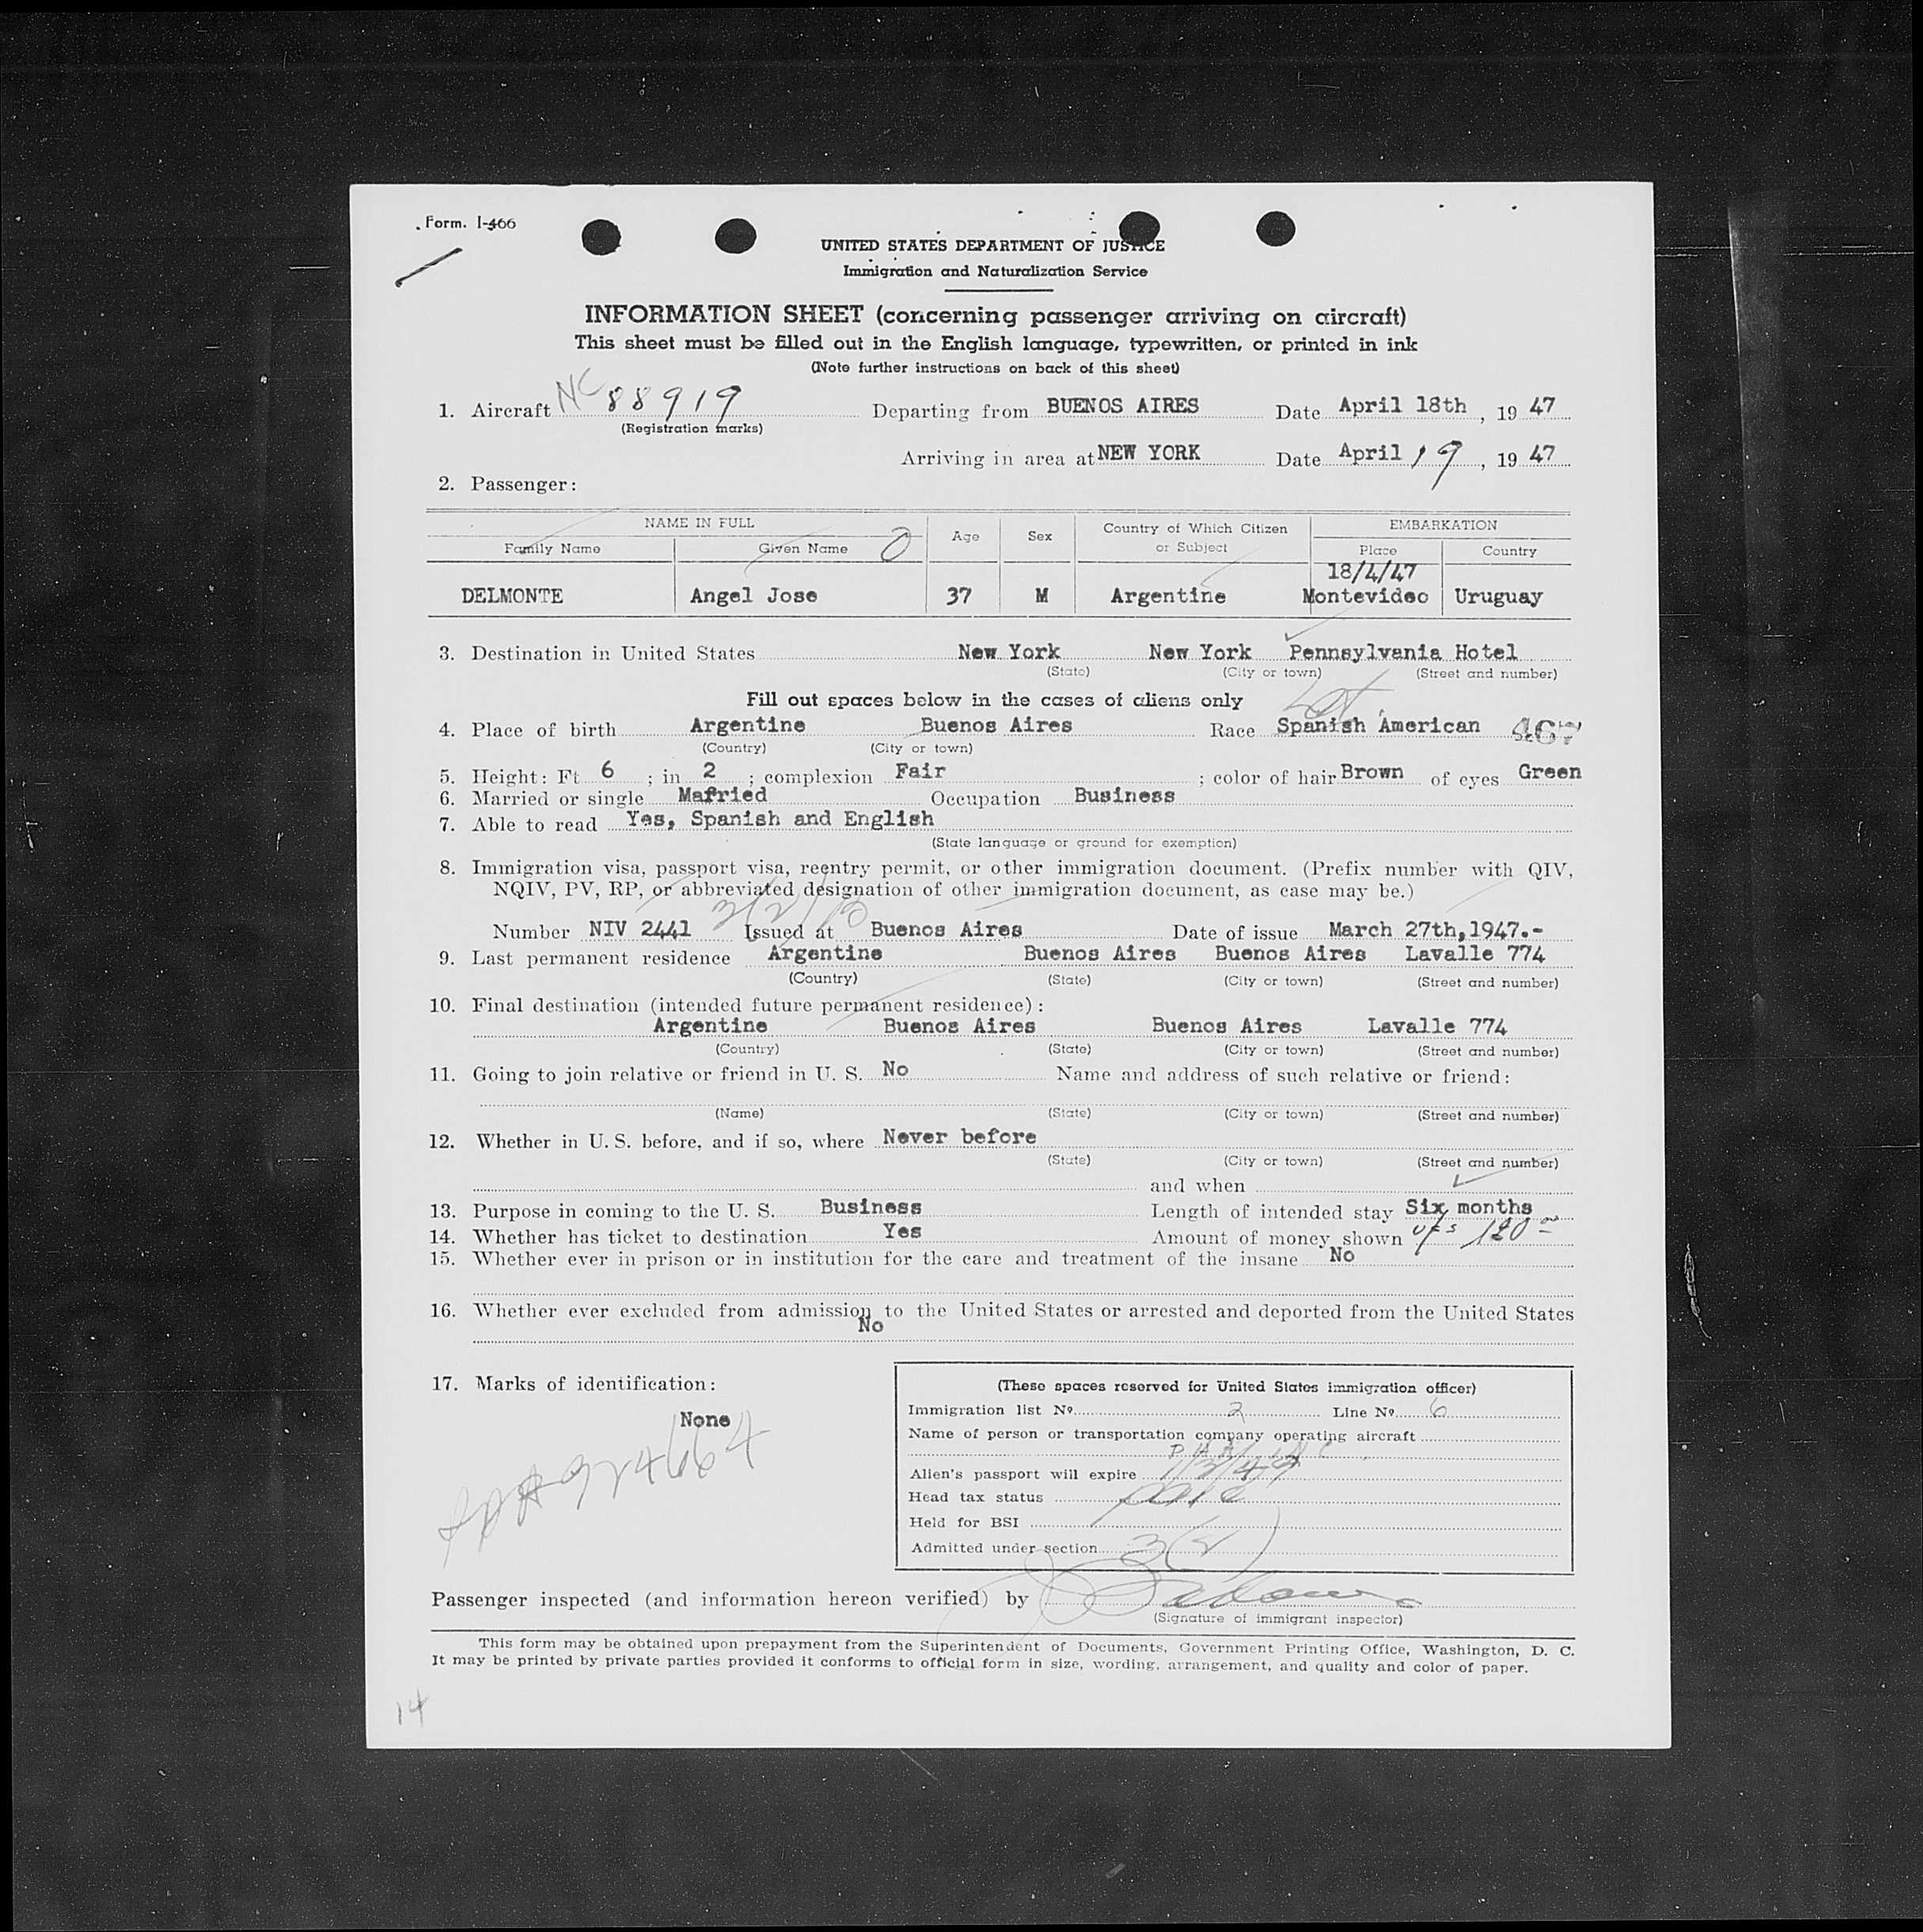 Form. I-466
UNITED STATES DEPARTMENT OF JUSTICE
Immigration and Naturalization Service
INFORMATION SHEET (concerning passenger arriving on aircraft)
This sheet must be filled out in the English language, typewritten, or printed in ink
(Note further instructions on back of this sheet)
1. Aircraft NC 88919 Departing from BUENOS AIRES Date April 18th, 19 47
(Registration marks)
Arriving in area at NEW YORK Date April 19, 19 47
2. Passenger:
NAME IN FULL Age Sex Country of Which Citizen or Subject EMBARKATION
Family Name Given Name Place Country
18/4/47
DELMONTE Angel Jose 37 M Argentine Montevideo Uruguay
3. Destination in United States New York New York Pennsylvania Hotel
(State) (City or town) (Street and number)
Fill out spaces below in the cases of aliens only
4. Place of birth Argentine Buenos Aires Race Spanish American 467
(Country) (City or town)
5. Height: Ft 6 ; in 2 ; complexion Fair ; color of hair Brown of eyes Green
6. Married or single Married Occupation Business
7. Able to read Yes, Spanish and English
(State language or ground for exemption)
8. Immigration visa, passport visa, reentry permit, or other immigration document. (Prefix number with QIV,
NQIV, PV, RP, or abbreviated designation of other immigration document, as case may be.)
3(2)
Number NIV 2441 Issued at Buenos Aires Date of issue March 27th,1947.-
9. Last permanent residence Argentine Buenos Aires Buenos Aires Lavalle 774
(Country) (State) (City or town) (Street and number)
10. Final destination (intended future permanent residence):
Argentine Buenos Aires Buenos Aires Lavalle 774
(Country) (State) (City or town) (Street and number)
11. Going to join relative or friend in U. S. No Name and address of such relative or friend:
(Name) (State) (City or town) (Street and number)
12. Whether in U. S. before, and if so, where Never before
(State) (City or town) (Street and number)
and when
13. Purpose in coming to the U. S. Business Length of intended stay Six months
14. Whether has ticket to destination Yes Amount of money shown
15. Whether ever in prison or in institution for the care and treatment of the insane No
16. Whether ever excluded from admission to the United States or arrested and deported from the United States
No
17. Marks of identification:
None
(These spaces reserved for United States immigration officer)
Immigration list Nº 2 Line Nº 6
Name of person or transportation company operating aircraft
Alien's passport will expire
Head tax status
Held for BSI
Admitted under section 3(2)
Passenger inspected (and information hereon verified) by
(Signature of immigrant inspector)
This form may be obtained upon prepayment from the Superintendent of Documents, Government Printing Office, Washington, D. C.
It may be printed by private parties provided it conforms to official form in size, wording, arrangement, and quality and color of paper.
14